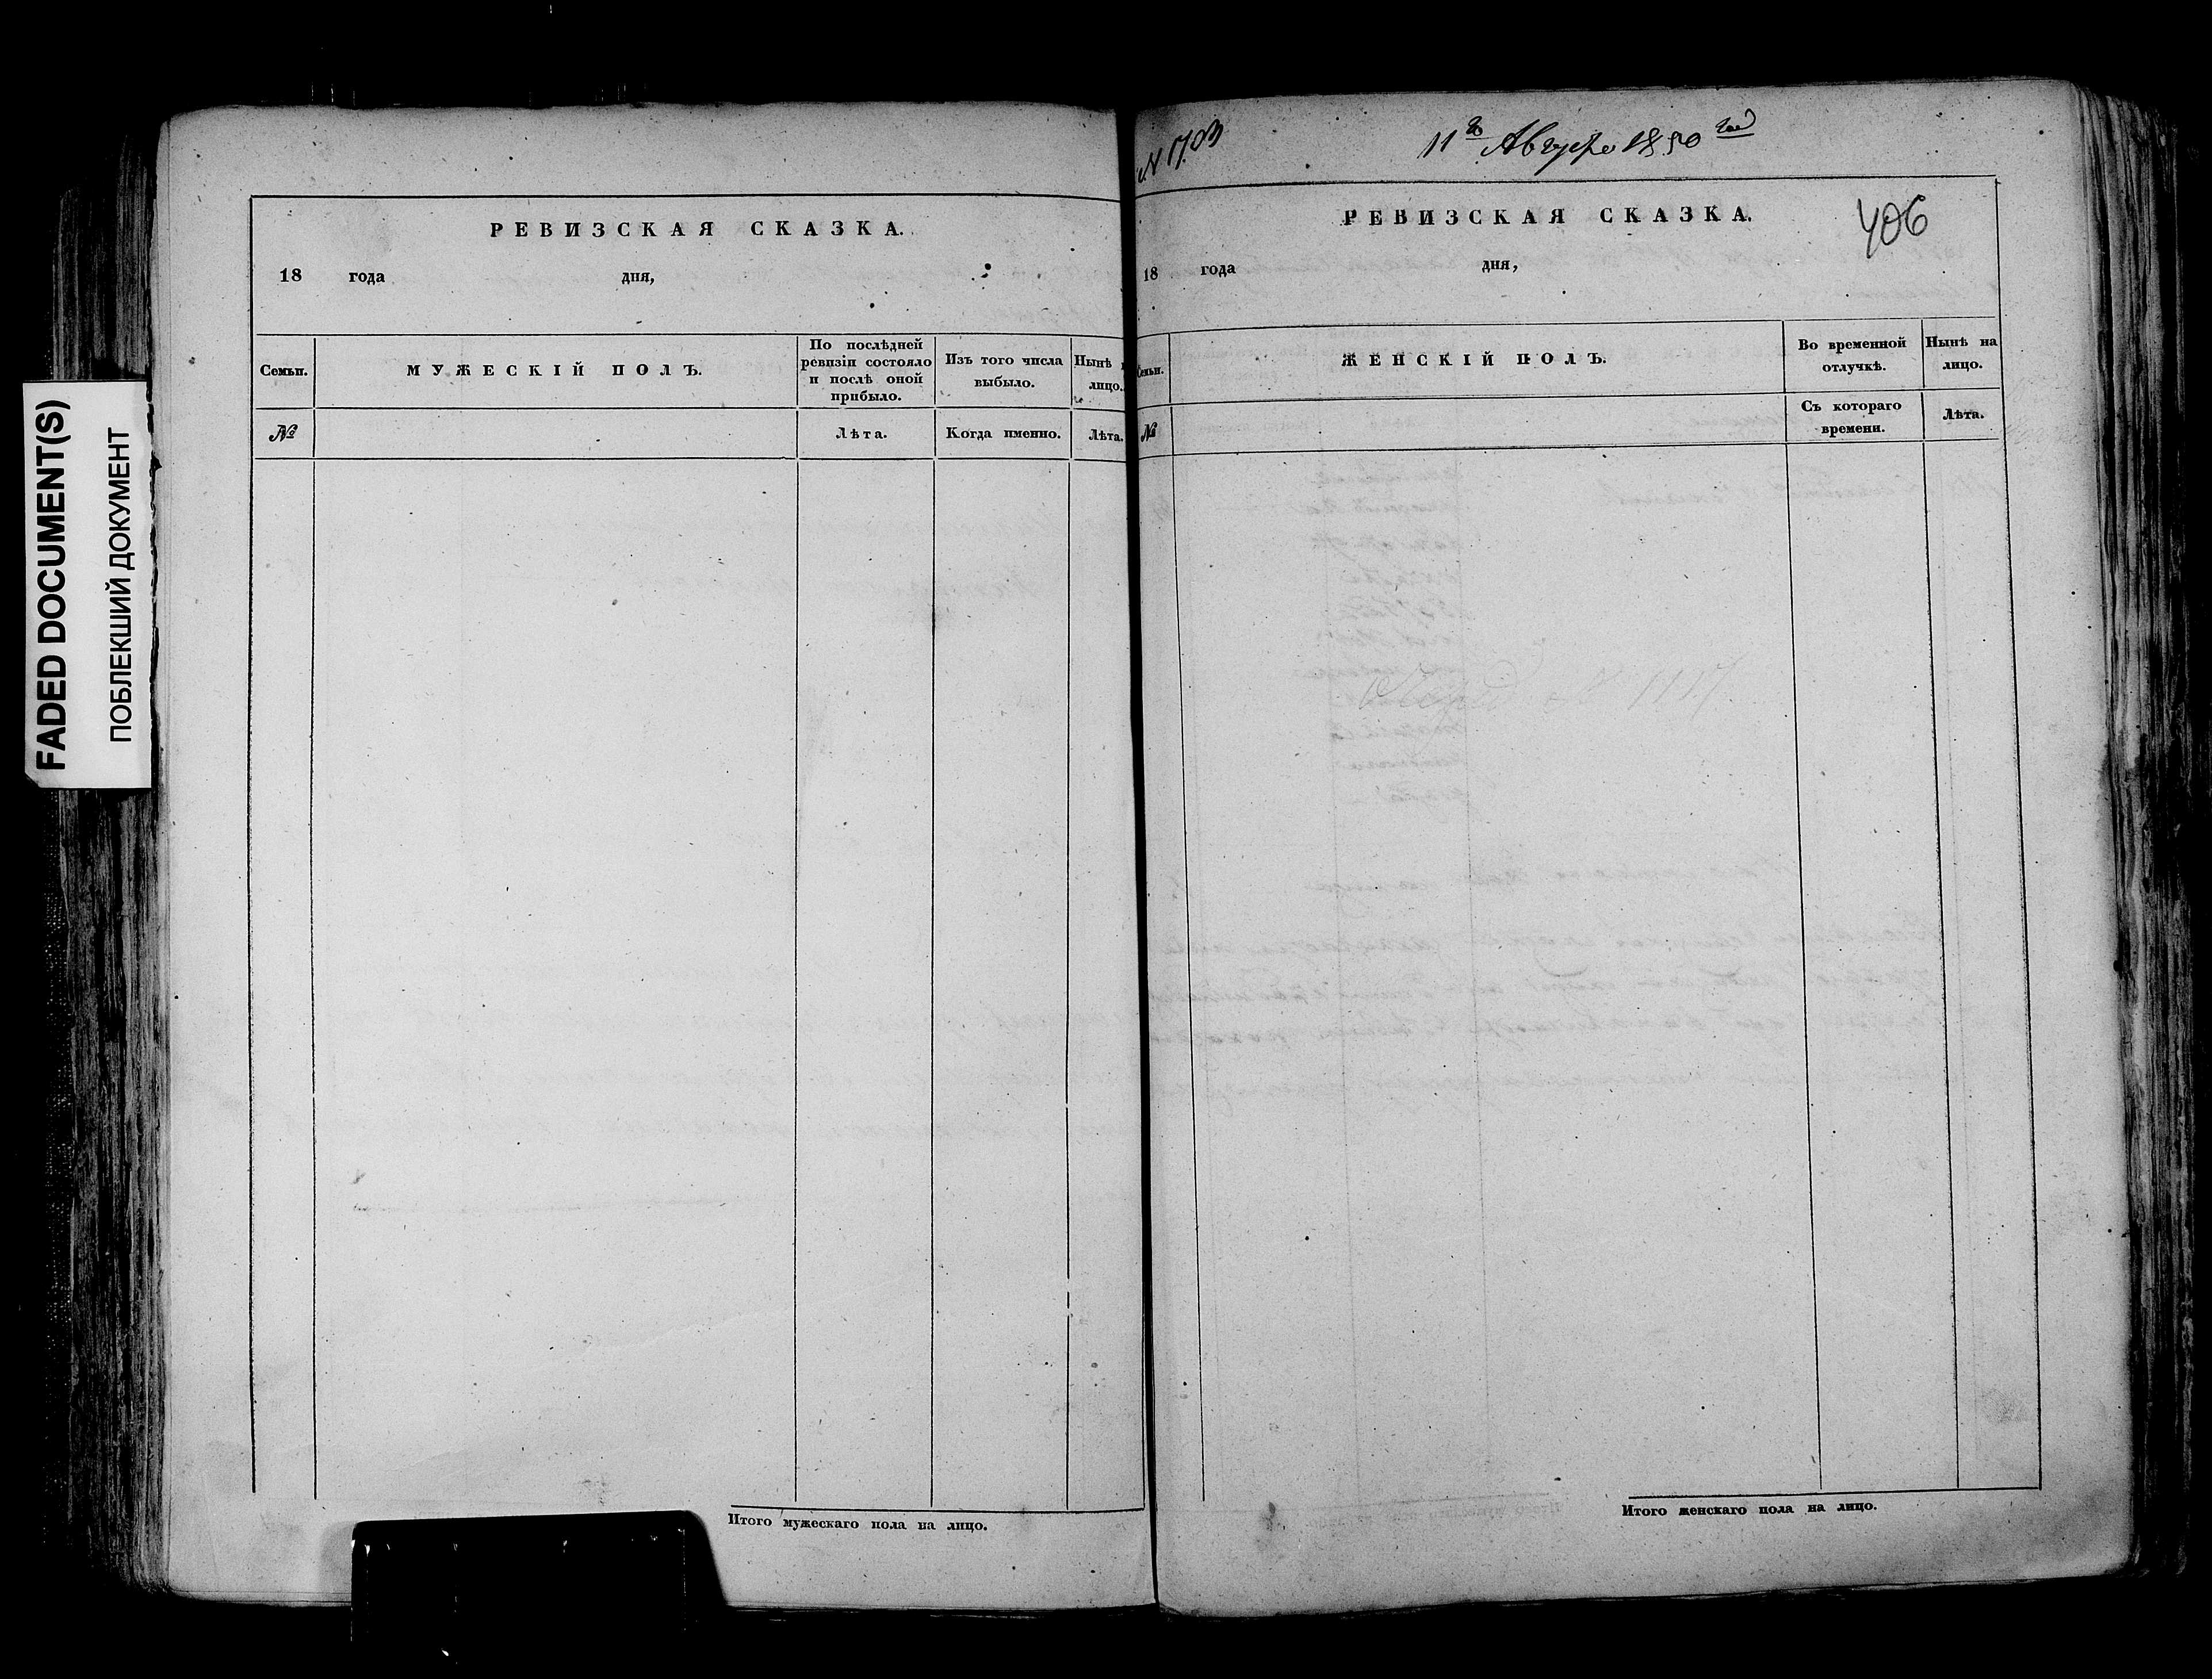 FADED DOCUMENT(S)
ПОБЛЕКШИЙ ДОКУМЕНТ
РЕВИЗСКАЯ СКАЗКА.
18 года дня,
Семьи.
МУЖЕСКІЙ ПОЛЪ.
По послѣдней
ревизіи состояло
и послѣ оной
прибыло.
Изъ того числа
выбыло.
Нынѣ
лицо.
№
Лѣта.
Когда именно.
Лѣта.
Итого мужескаго пола на лицо.
№ 1703
11го Августа 1850 года
406
РЕВИЗСКАЯ СКАЗКА.
18 года дня,
Семьи.
ЖЕНСКІЙ ПОЛЪ.
Во временной
отлучкѣ.
Нынѣ на
лицо.
№
Съ котораго
времени.
Лѣта.
Итого женскаго пола на лицо.